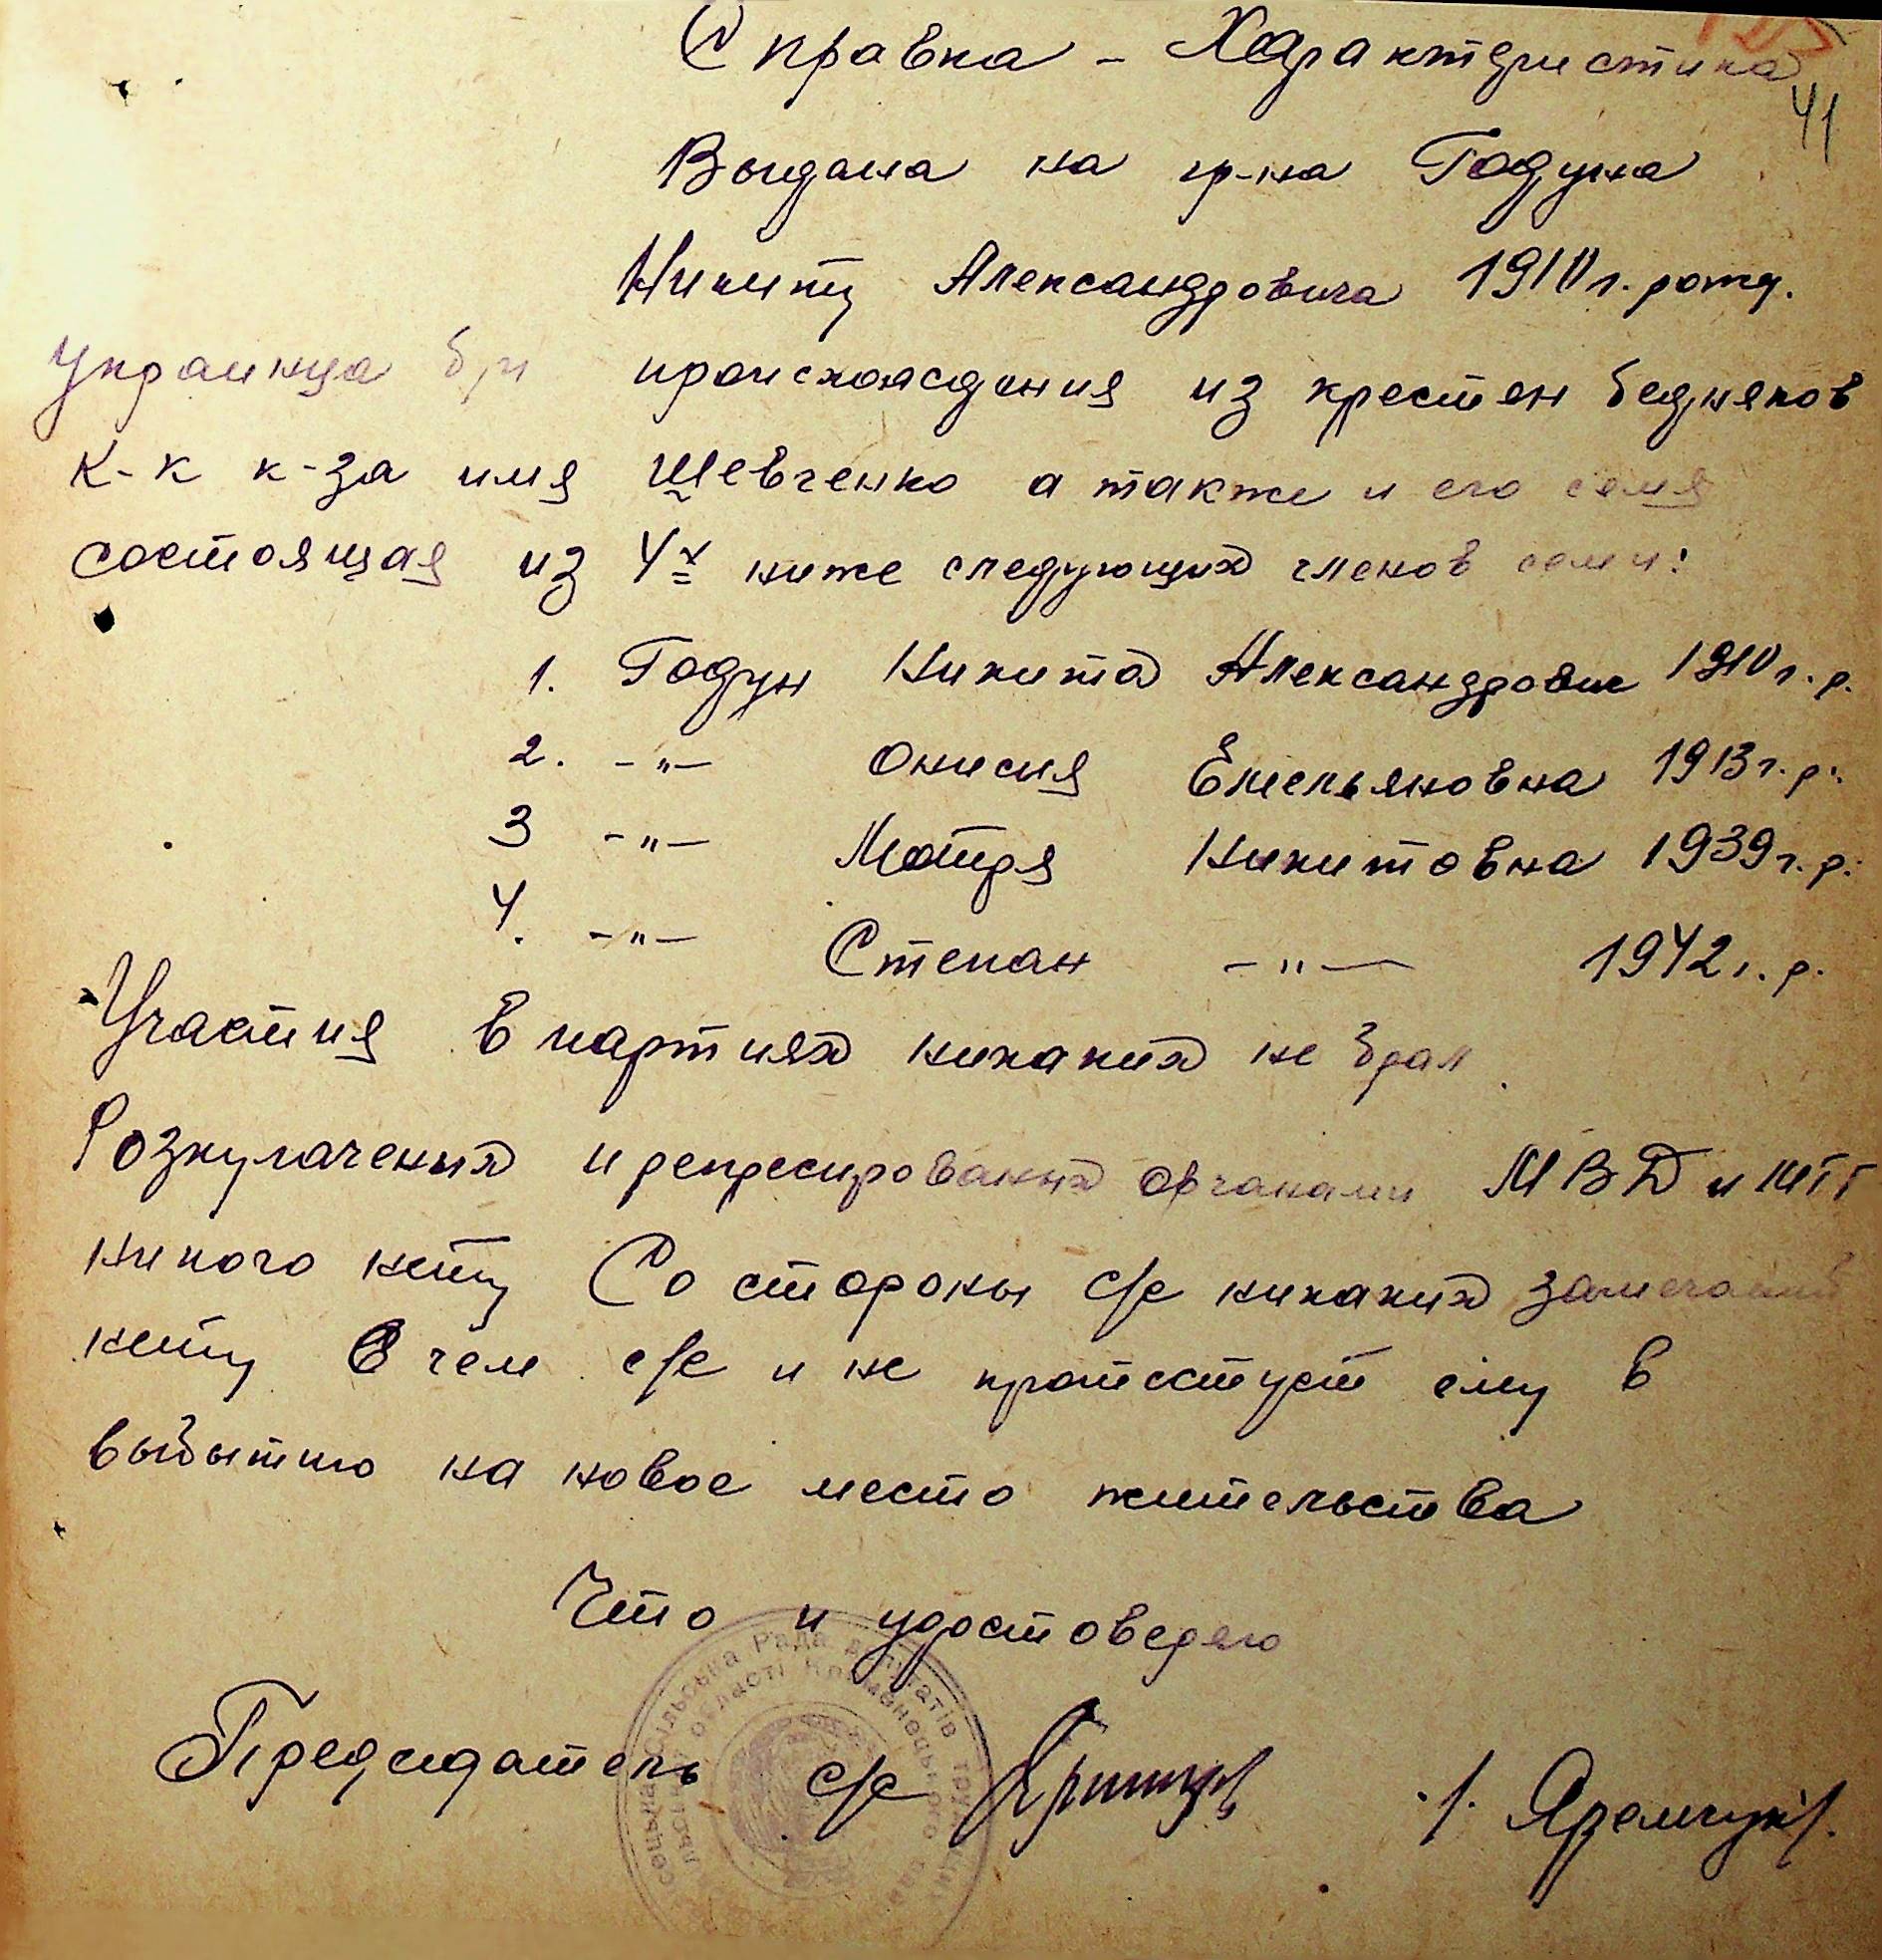 Справка - Характеристика
41
Выдана на гр-на Годуна
Никиту Александровича 1910 г. рожд.
Украинца б/п происхождения из крестян бедняков
К-к к-за имя Шевченко а также и его семя
состоящая из 4х ниже следующих членов семи:
1. Годун Никита Александрович 1910 г. р.
2. -"- Онисия Емельяновна 1913 г. р.
3 -"- Мотря Никитовна 1939 г. р.
4. -"- Степан -"- 1942 г. р.
Участия в партиях никаких не брал.
Розкулаченых и репресированых органами МВД и МГБ
никого нету Со стороны с/с никаких замечаний
нету В чем с/с и не протестует ему в
выбытию на новое место жительства
Что и удостоверяю
Председатель с/с /Яремчук/.
сільська Рада депутатів трудящих
області Кременецького